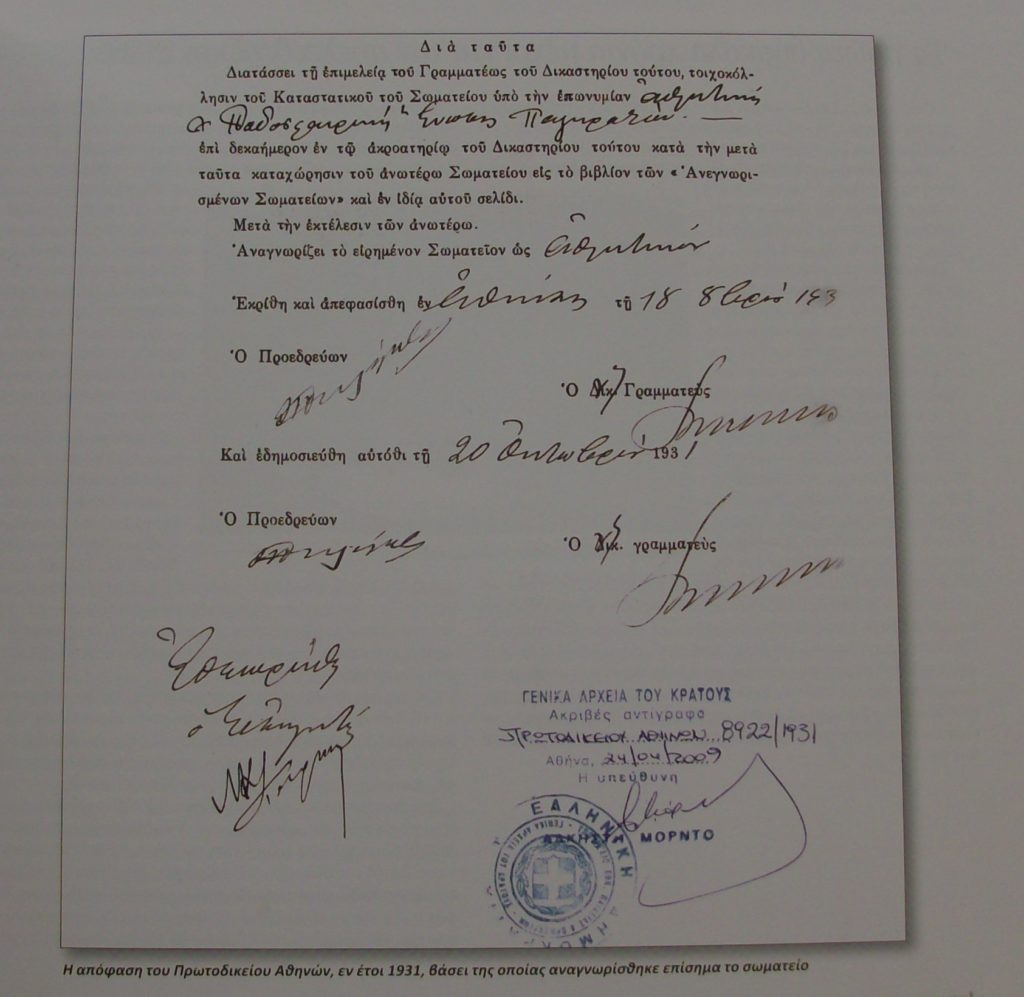 Διὰ ταῦτα
Διατάσσει τῇ ἐπιμελείᾳ τοῦ Γραμματέως τοῦ Δικαστηρίου τούτου, τοιχοκόλ-
λησιν τοῦ Καταστατικοῦ τοῦ Σωματείου ὑπὸ τὴν ἐπωνυμίαν Ἀθλητικὴ
Ποδοσφαιρικὴ Ἕνωσις Παγκρατίου. —
ἐπὶ δεκαήμερον ἐν τῷ ἀκροατηρίῳ τοῦ Δικαστηρίου τούτου κατὰ τὴν μετὰ
ταῦτα καταχώρησιν τοῦ ἀνωτέρω Σωματείου εἰς τὸ βιβλίον τῶν «Ἀνεγνωρι-
σμένων Σωματείων» καὶ ἐν ἰδίᾳ αὐτοῦ σελίδι.
Μετὰ τὴν ἐκτέλεσιν τῶν ἀνωτέρω.
Ἀναγνωρίζει τὸ εἰρημένον Σωματεῖον ὡς ἀθλητικόν
Ἐκρίθη καὶ ἀπεφασίσθη ἐν Ἀθήναις τῇ 18 8βρίου 193
Ὁ Προεδρεύων
Ὁ Γραμματεὺς
Καὶ ἐδημοσιεύθη αὐτόθι τῇ 20 Ὀκτωβρίου 1931
Ὁ Προεδρεύων
Ὁ γραμματεὺς
Ἐθεωρήθη
ὁ Εἰσηγητής
ΓΕΝΙΚΑ ΑΡΧΕΙΑ ΤΟΥ ΚΡΑΤΟΥΣ
Ακριβές αντίγραφο
ΠΡΩΤΟΔΙΚΕΙΟΥ ΑΘΗΝΩΝ 8922/1931
Αθήνα, 24/04/2009
Η υπεύθυνη
ΜΟΡΝΤΟ
ΕΛΛΗΝΙΚΗ
Η απόφαση του Πρωτοδικείου Αθηνών, εν έτοι 1931, βάσει της οποίας αναγνωρίσθηκε επίσημα το σωματείο